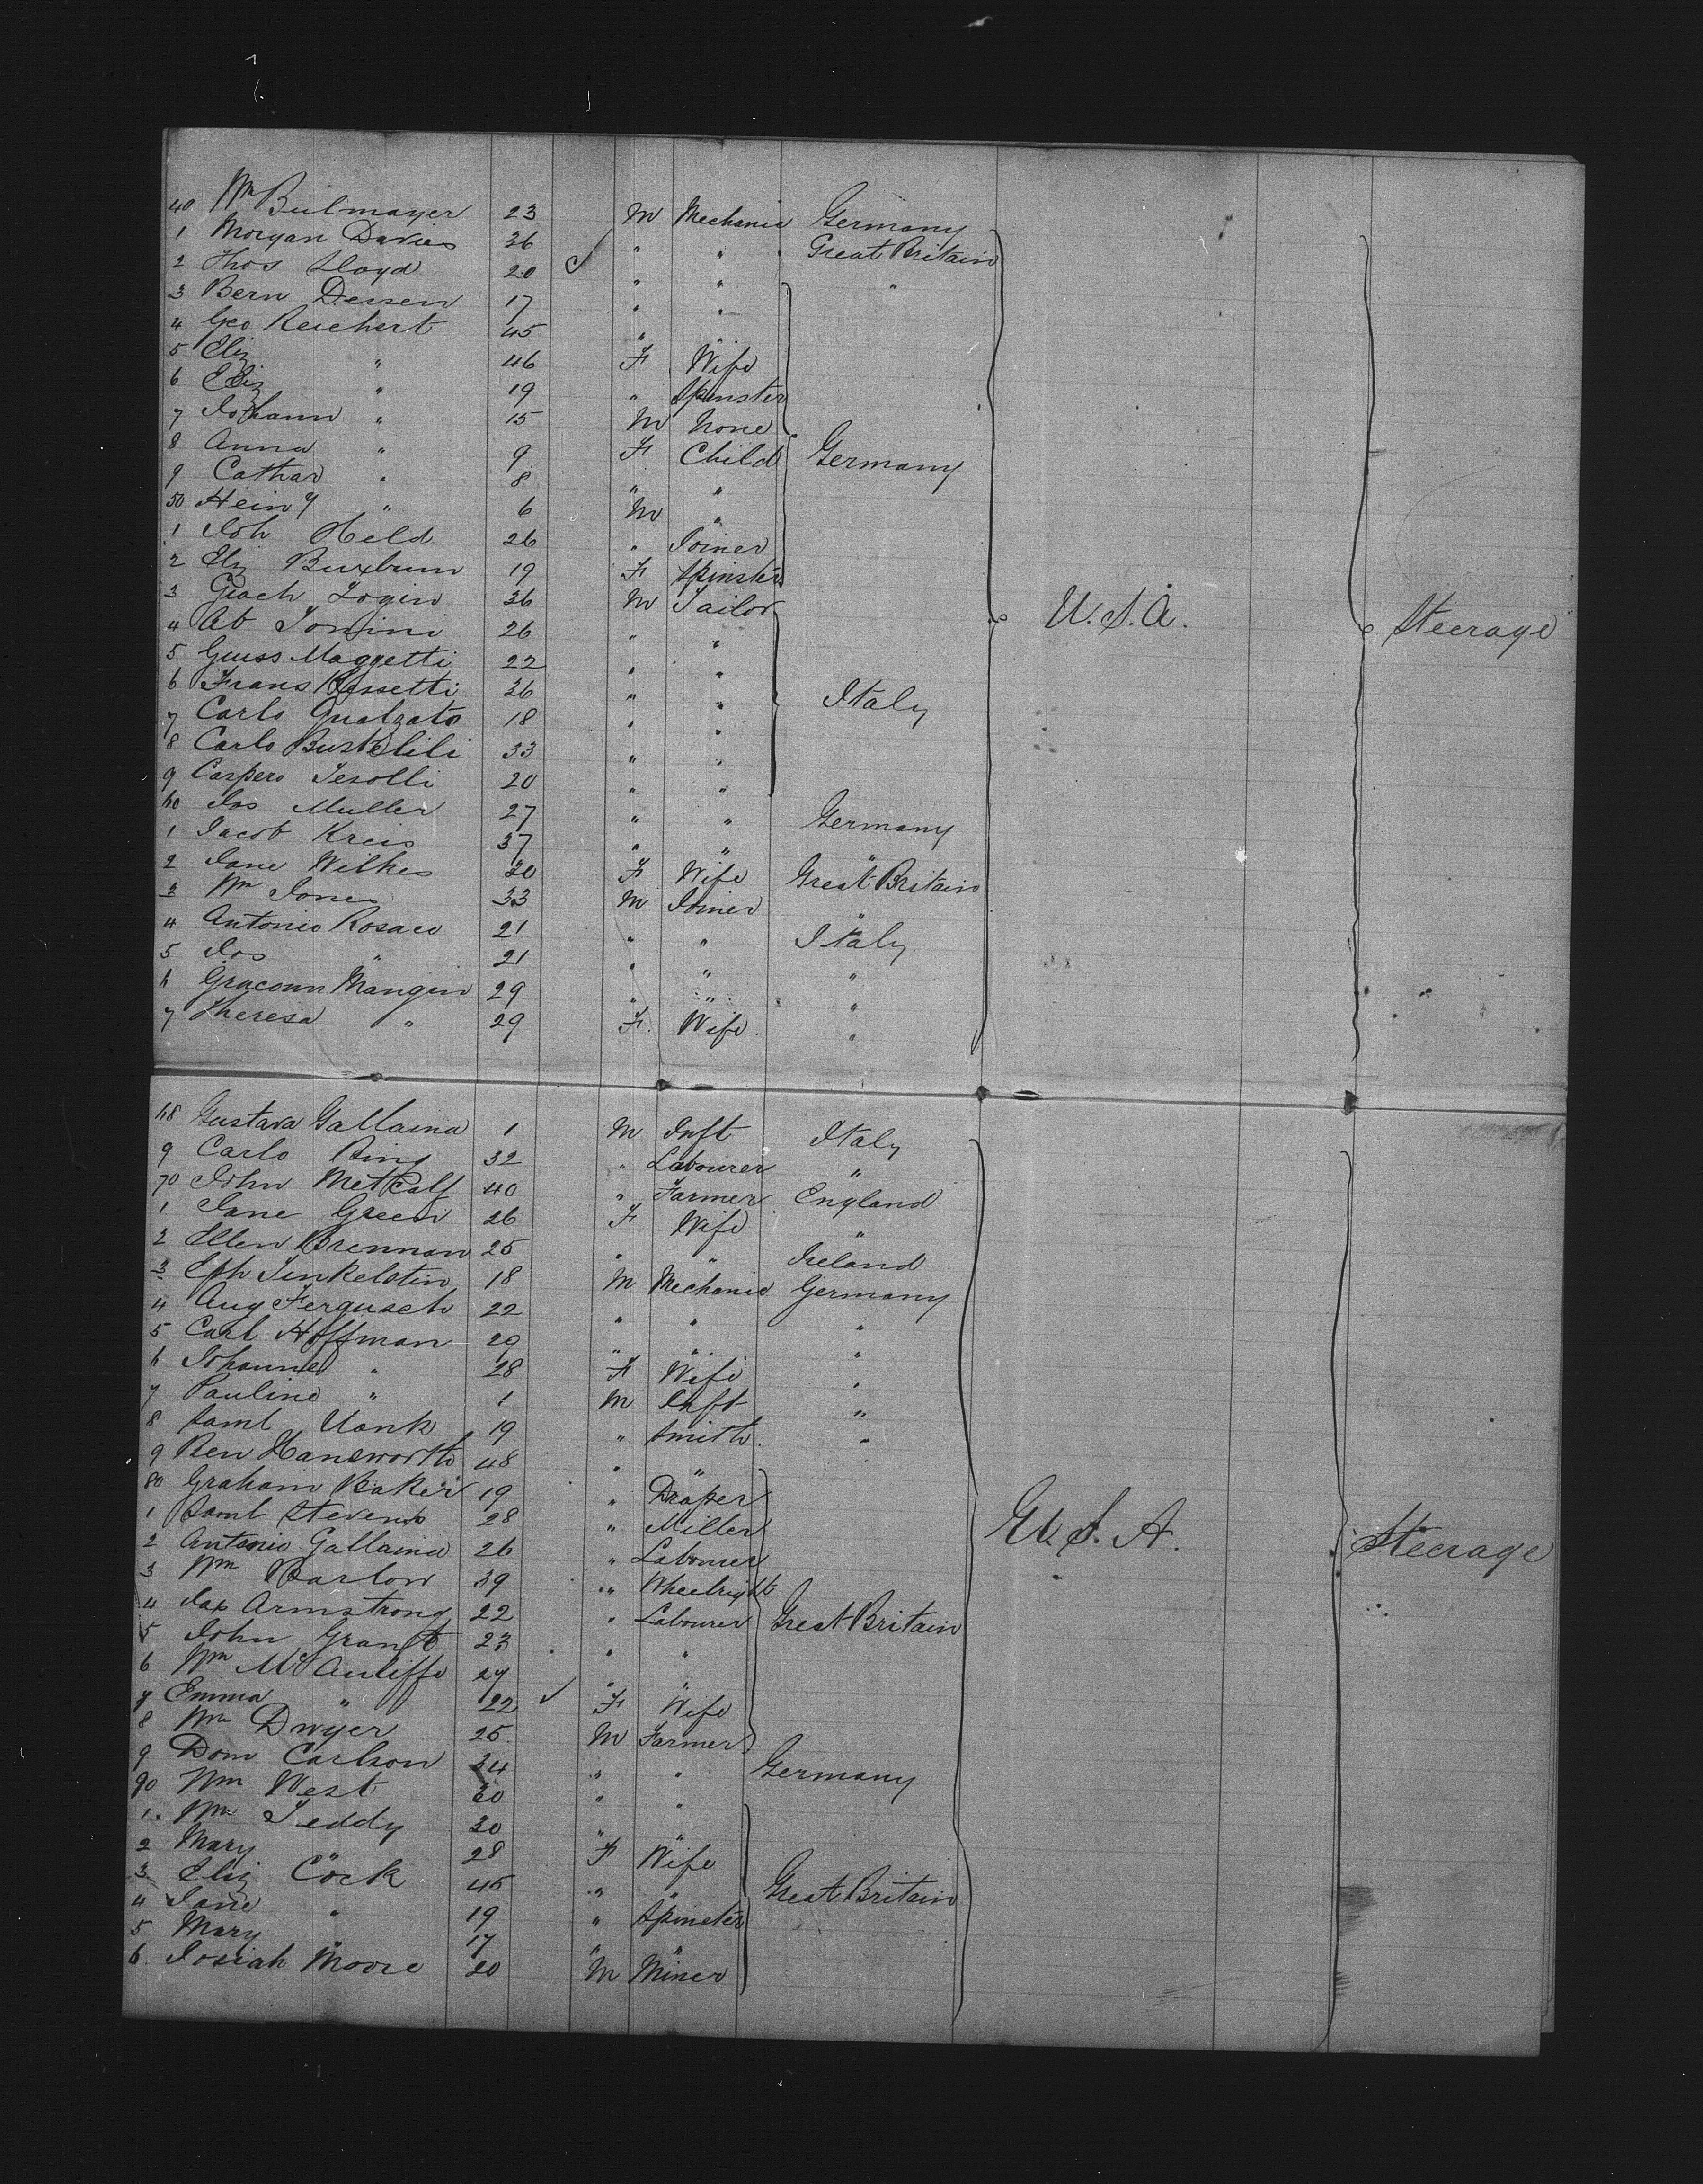 40 Wm Bulmayer 23 M Mechanic Germany
1 Morgan Davies 36 " " Great Britain
2 Thos Lloyd 20 " " "
3 Bern Deesen 17 " "
4 Geo Reichert 45 "
5 Eliz " 46 F Wife
6 Eliz " 19 " Spinster
7 Johann " 15 M None
8 Anna " 9 F Child Germany
9 Cathar " 8 " "
50 Heiny " 6 M "
1 Joh Held 26 " Joiner
2 Eliz Buxbum 19 F Spinster
3 Giach Zogin 36 M Tailor U.S.A. Steerage
4 Ab Tonini 26 " "
5 Guiss Maggetti 22 " "
6 Frans Rossetti 36 " " Italy
7 Carlo Gualzato 18 " "
8 Carlo Bustelili 33 " "
9 Caspero Tesolli 20 " "
60 Jos Muller 27 " " Germany
1 Jacob Kreis 37 " " "
2 Jane Wilkes 30 F Wife Great Britain
3 Wm Jones 33 M Joiner "
4 Antonio Rosaco 21 " " Italy
5 Jos " 21 " " "
6 Gracoun Mangin 29 " " "
7 Theresa " 29 F. Wife "
68 Gustava Gallaina 1 M Inft Italy
9 Carlo Bing 32 " Labourer "
70 John Metcalf 40 " Farmer England
1 Jane Green 26 F Wife "
2 Ellen Brennan 25 " " Ireland
3 Eph Finkelstin 18 M Mechanic Germany
4 Aug Fergusch 22 " " "
5 Carl Hoffman 29 " " "
6 Johanne " 28 F Wife "
7 Pauline " 1 M Inft "
8 Saml Uank 19 " Smith "
9 Ben Hansworth 48 " "
80 Graham Baker 19 " Draper
1 Saml Stevens 28 " Miller U.S.A. Steerage
2 Antonio Gallaina 26 " Labourer
3 Wm Barlow 39 " Wheelright
4 Jas Armstrong 22 " Labourer Great Britain
5 John Grant 23 " "
6 Wm McAuliffe 27 " "
7 Emma " 22 F Wife
8 Wm Dwyer 25 M Farmer
9 Dom Carlson 24 " " Germany
90 Wm West 30 " "
1 Wm Teddy 30 " "
2 Mary " 28 F Wife
3 Eliz Cock 45 " " Great Britain
4 Jane " 19 " Spinster
5 Mary " 17 " "
6 Josiah Moore 20 M Miner